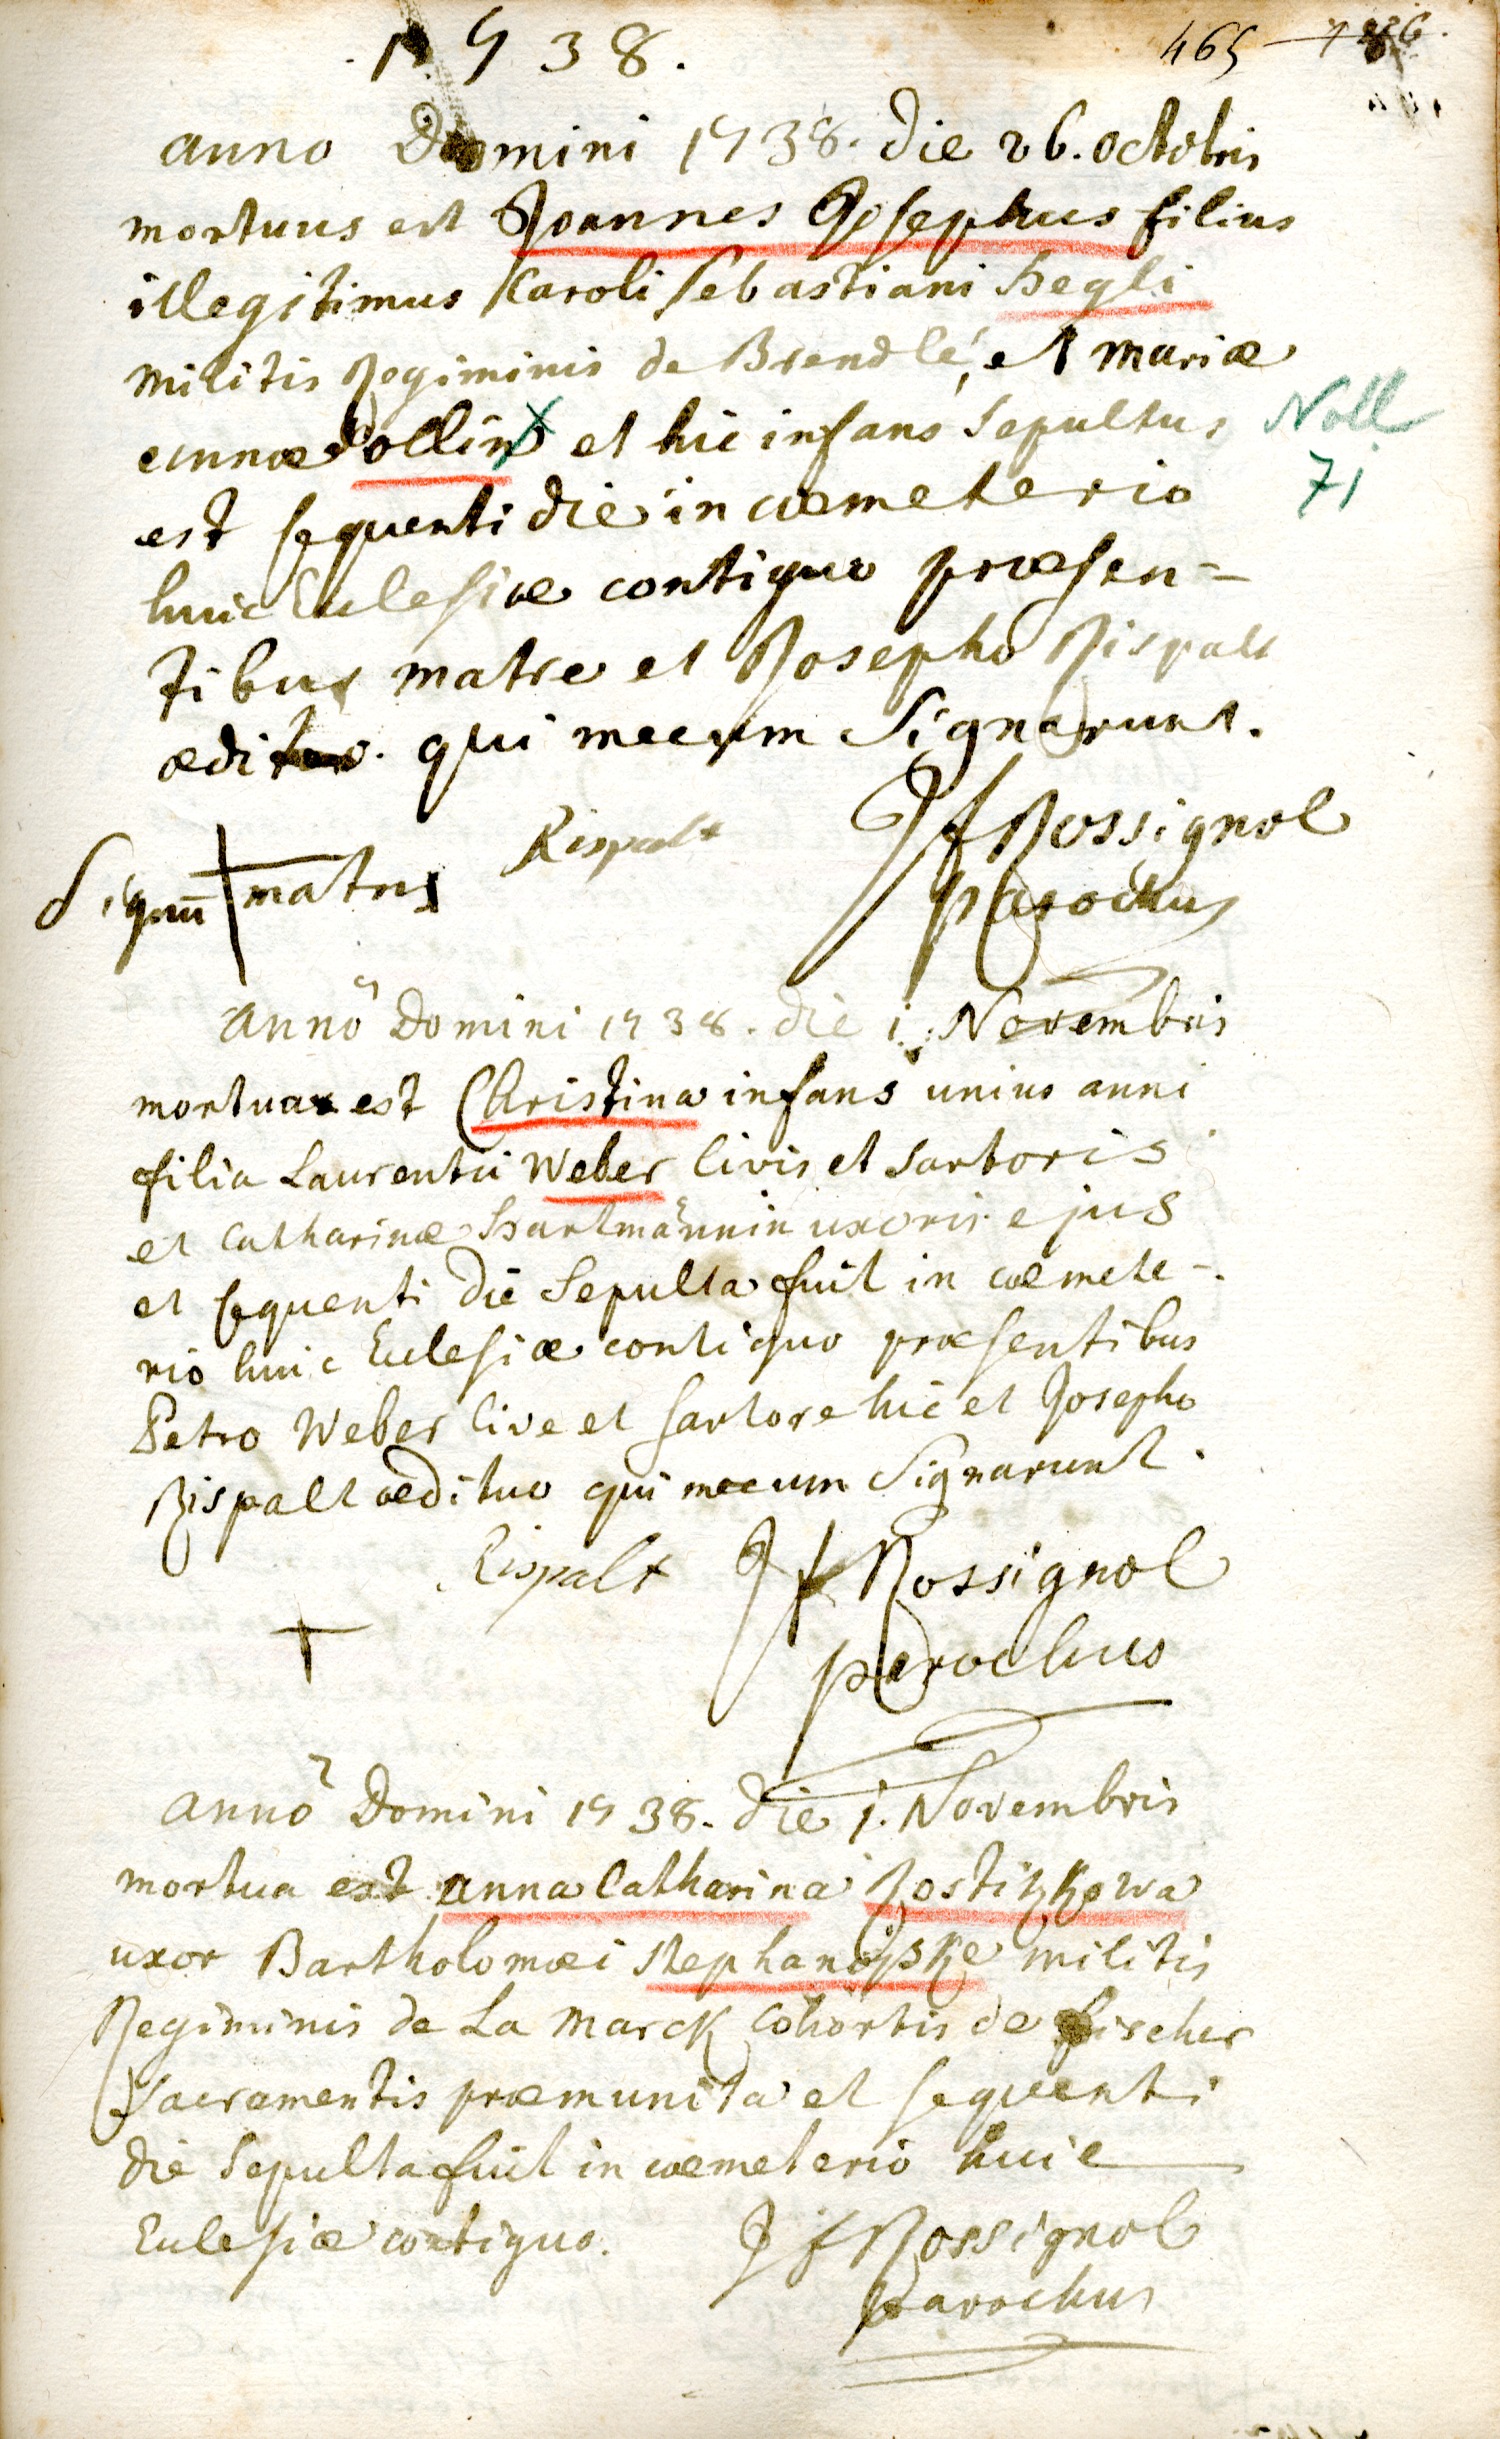 1738.
465
anno Domini 1738. die 26. octobris
mortuus est Joannes Josephus filius
illegitimus Karoli Sebastiani Hegli
militis Regiminis de Brendlé, et mariæ
annæ et hic infans sepultus
Noll
71
est sequenti die in cœmeterio
huic Eclesiæ contiguo præsen-
tibus matre et Josepho Rispalt
ædituo. qui mecum signarunt.
Rispalt
JfRossignol
Signū matris
parochus
annò Domini 1738. die 1. Novembris
mortua est Christina infans unius anni
filia Laurentii Weber Civis et Sartoris
et Catharinæ Hartmännin uxoris ejus
et sequenti die Sepulta fuit in cœmete-
rio huic Eclesiæ contiguo præsentibus
Petro Weber Cive et sartore hic et Josepho
Rispalt ædituo qui mecum Signarunt.
Rispalt
Jf Rossignol
parochus
annò Domini 1738. die 1. Novembris
mortua est anna Catharina
uxor Bartholomæi militis
Regiminis de La Marck Cohortis de fischer
Sacramentis præmunita et sequenti
die Sepulta fuit in cœmeterio huic
Eclesiæ contiguo.
J f Rossignol
parochus